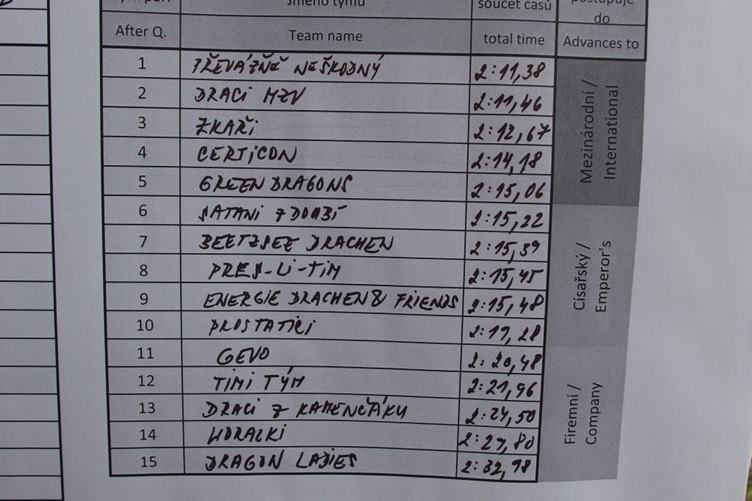 Jméno týmu součet časů postupuje
do
After Q. Team name total time Advances to
1 PŘEVÁŽNĚ NEŠKODNÝ 2:11,38
2 DRACI MZV 2:11,46
3 ŽKAŘI 2:12,67
4 CERTICON 2:14,18
5 GREEN DRAGONS 2:15,06
Mezinárodní /
International
6 SATANI Z DOUBÍ 2:15,22
7 BEETZSEE DRACHEN 2:15,39
8 PRES-LI-TIM 2:15,45
9 ENERGIE DRACHEN & FRIENDS 2:15,48
10 PROSTATICI
Císařský /
Emperor's
11 GEVO 2:20,48
12 TIMI TÝM 2:21,96
13 DRACI Z KAMENČÁKU 2:24,50
14 HORALKI
15 DRAGON LADIES 2:32,98
Firemní /
Company